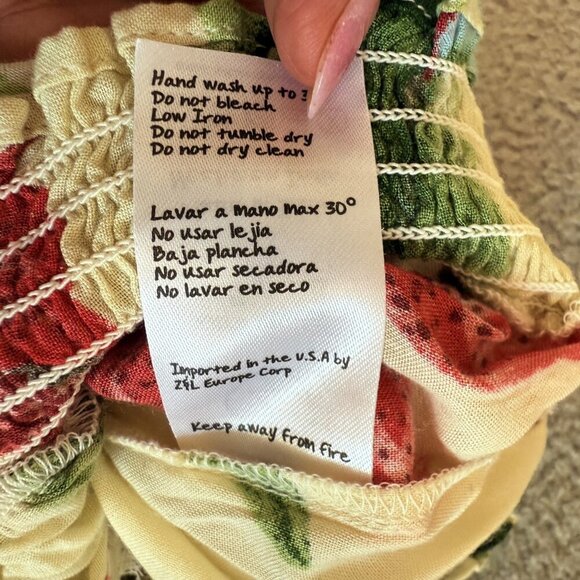 Hand wash up to 3
Do not bleach
Low Iron
Do not tumble dry
Do not dry clean
Lavar a mano max 30°
No usar lejia
Baja plancha
No usar secadora
No lavar en seco
Imported in the U.S.A by
Z&L Europe Corp
Keep away from fire